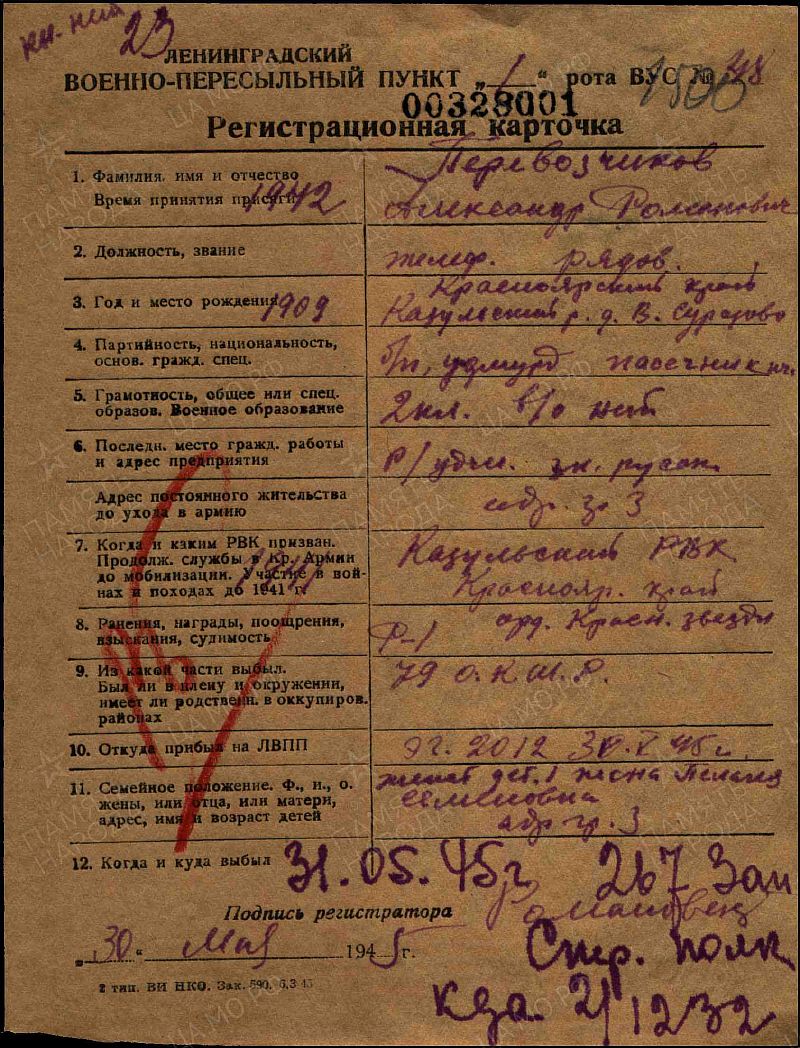 23
ЛЕНИНГРАДСКИЙ
ВОЕННО-ПЕРЕСЫЛЬНЫЙ ПУНКТ „1“ рота ВУС №
00328001
Регистрационная карточка
1. Фамилия, имя и отчество Перевозчиков
Время принятия присяги 1942 Александр Романович
2. Должность, звание телеф. рядов.
Красноярский край
3. Год и место рождения 1909 Казульский р. д. В. Суразово
4. Партийность, национальность,
основ. гражд. спец. б/п, удмурд пасечник
5. Грамотность, общее или спец.
образов. Военное образование 2 кл. в/о нет
6. Последн. место гражд. работы
и адрес предприятия Р/удм. зн. русск.
Адрес постоянного жительства
до ухода в армию адр. гр 3
7. Когда и каким РВК призван.
Продолж. службы в Кр. Армии
до мобилизации. Участие в вой-
нах и походах до 1941 г. 1941
Казульский РВК
Краснояр. край
8. Ранения, награды, поощрения,
взыскания, судимость Р-1 орд. Красн. звезды
9. Из какой части выбыл.
Был ли в плену и окружении,
имеет ли родственн. в оккупиров.
районах
79 о.К.Ш.Р.
10. Откуда прибыл на ЛВПП эг. 2012 30.V.45г.
11. Семейное положение. Ф., и., о.
жены, или отца, или матери,
адрес, имя и возраст детей
женат дет. 1 жена Пелагея
Семеновна
адр гр. 3
12. Когда и куда выбыл 31.05.45г 267 Зап
Подпись регистратора
Стр. полк
„30“ Мая 1945 г.
2 тип. ВИ НКО. Зак. 590. 6.3 45
кза. 2/1232